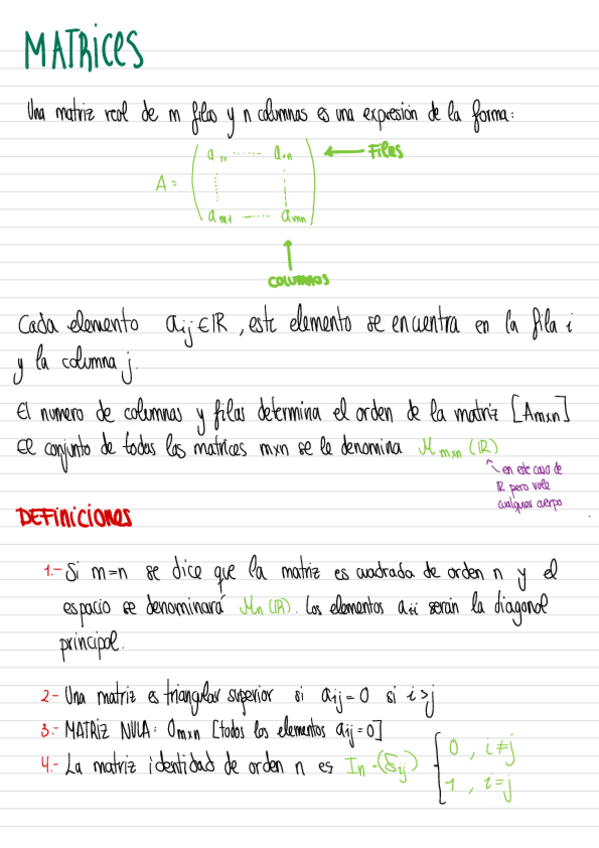 MATRICES
Una matriz real de m filas y n columnas es una expresión de la forma:
A = ( a₁₁ ...... a₁ₙ ) ← FILAS
( aₘ₁ ...... aₘₙ )
↑
COLUMNAS
Cada elemento aᵢⱼ ∈ ℝ, este elemento se encuentra en la fila i
y la columna j.
El numero de columnas y filas determina el orden de la matriz [Amxn]
El conjunto de todas las matrices mxn se le denomina Mmxn (ℝ)
en este caso de
ℝ pero vale
cualquier cuerpo
DEFINICIONES
1.- Si m=n se dice que la matriz es cuadrada de orden n y el
espacio se denominará Mn (ℝ). Los elementos aᵢᵢ serán la diagonal
principal.
2.- Una matriz es triangular superior si aᵢⱼ = 0 si i>j
3.- MATRIZ NULA: Omxn [todos los elementos aᵢⱼ = 0]
4.- La matriz identidad de orden n es In - (δᵢⱼ) { 0 , i≠j
1 , i=j